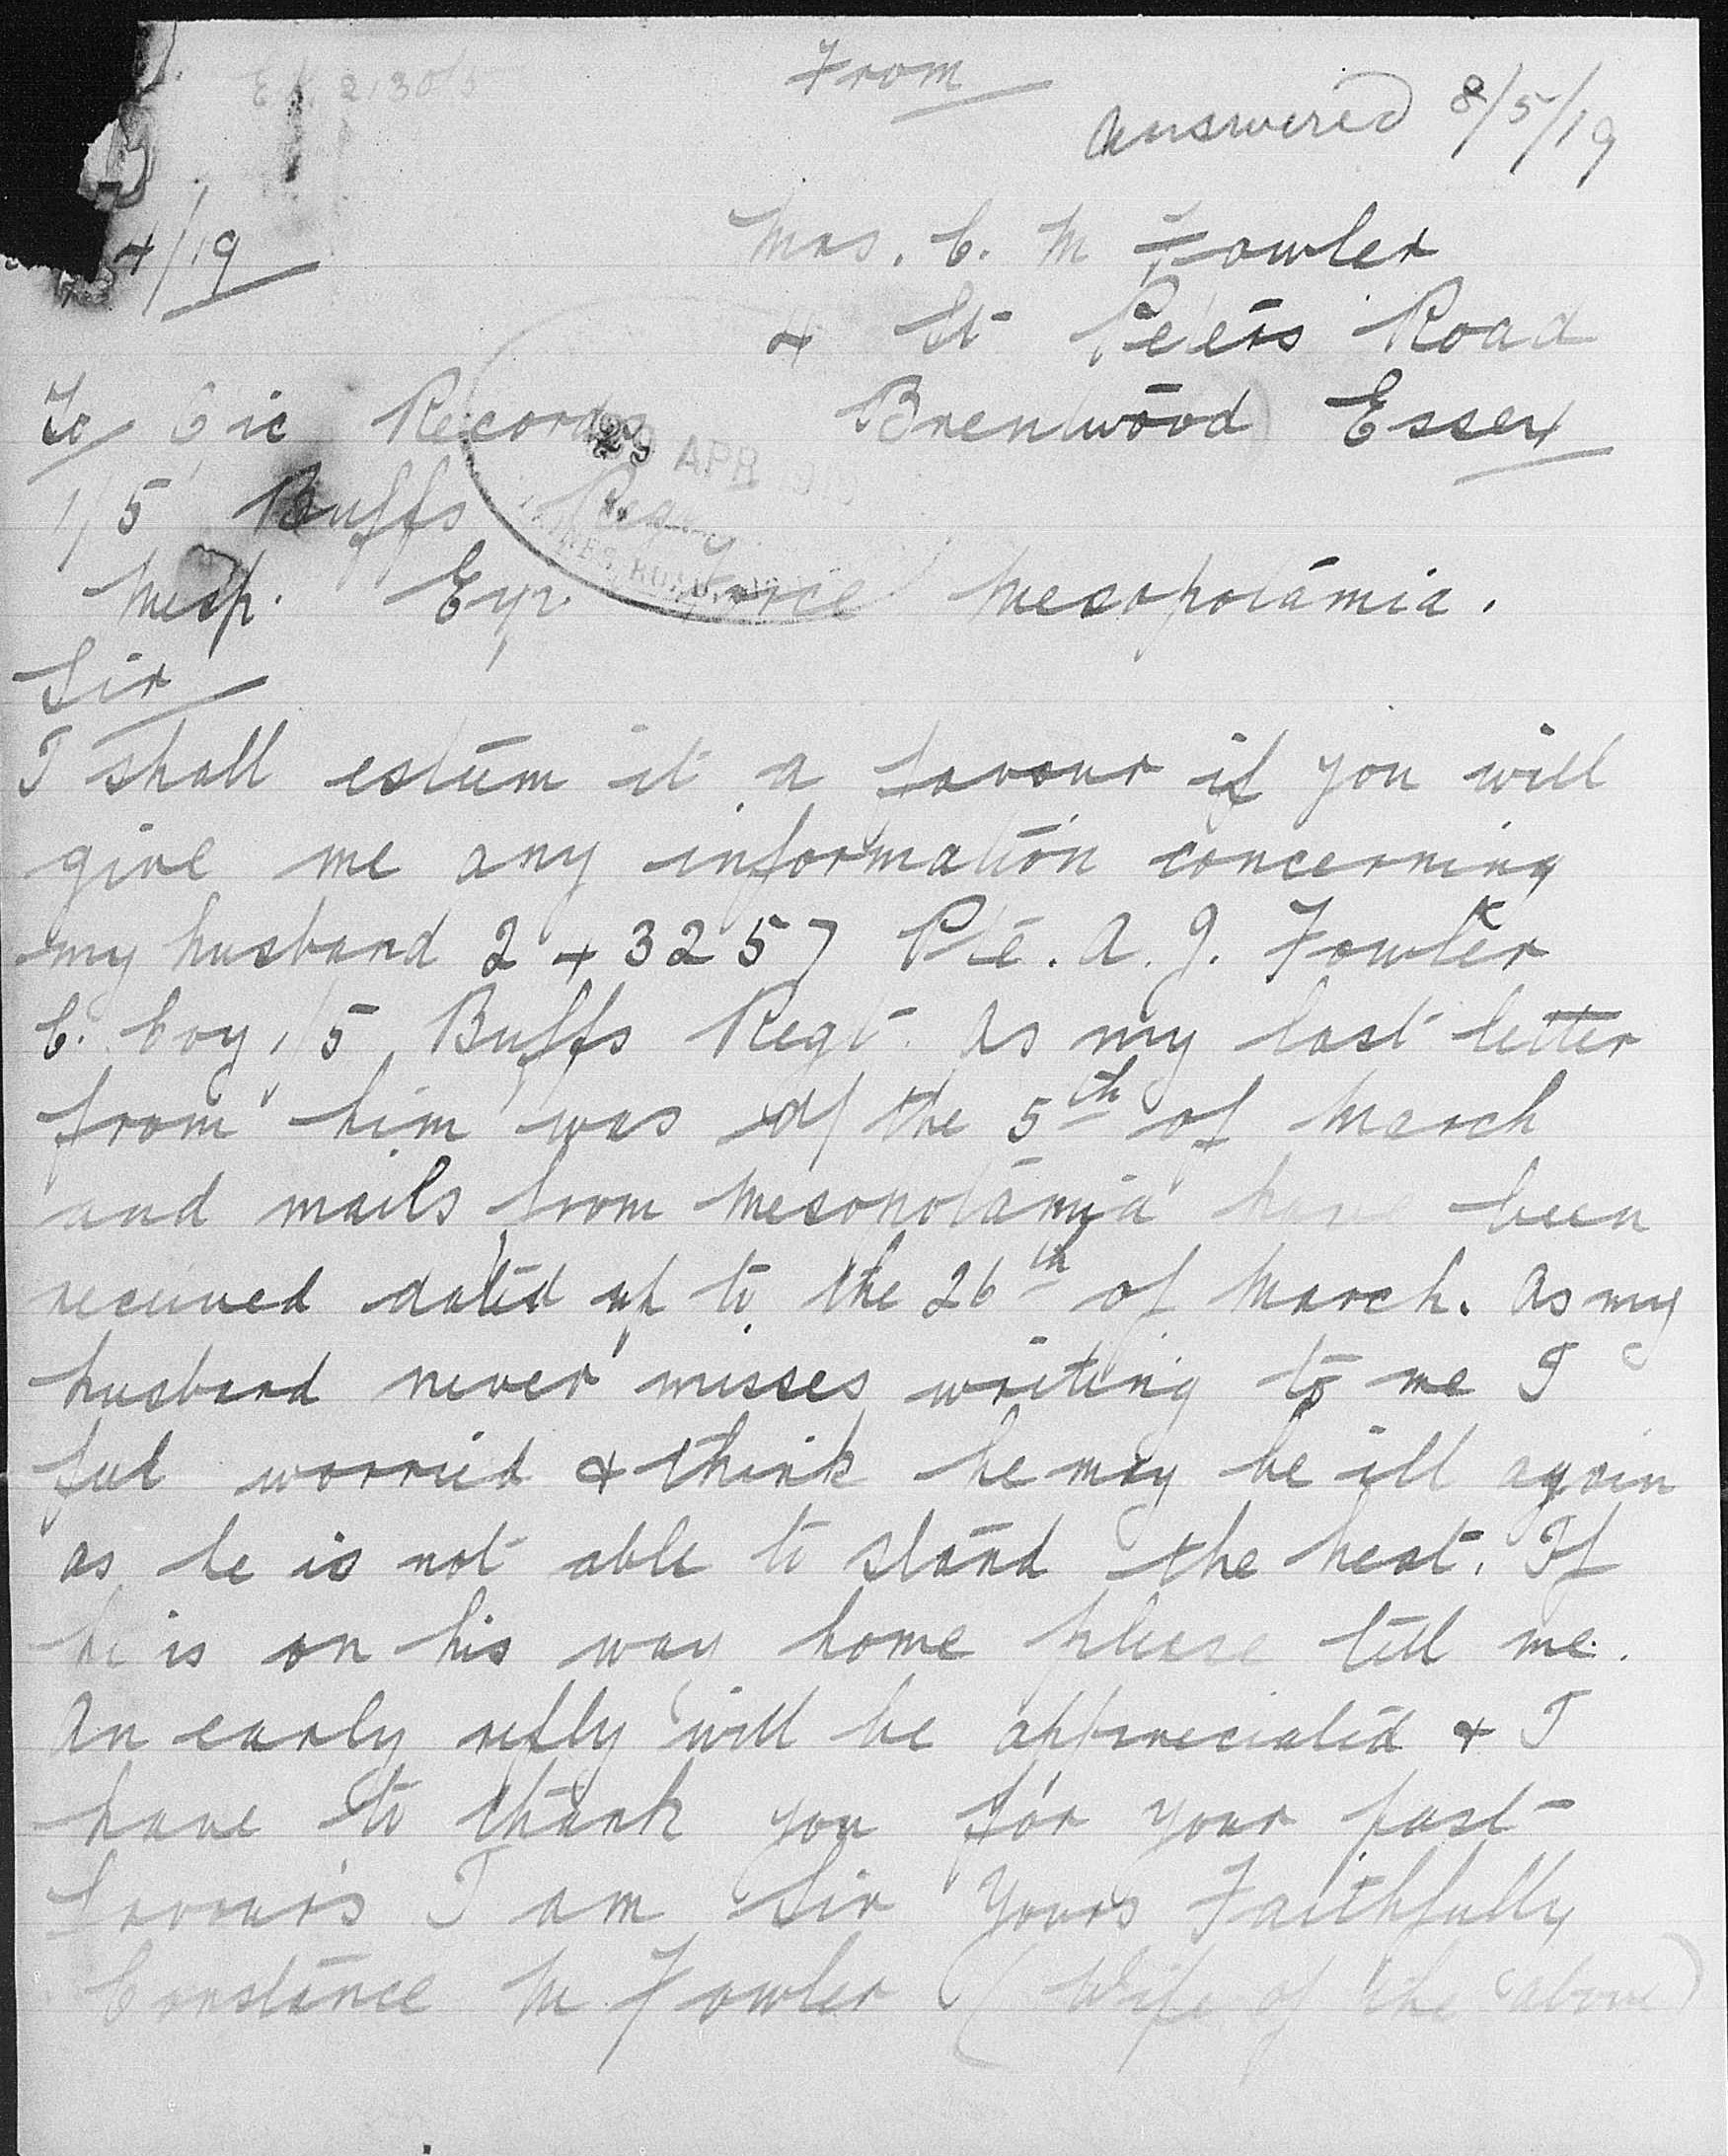 From
answered 8/5/19
4/19
Mrs. C. M Fowler
4 St Peters Road
To O ic Records
Brentwood Essex
29 APR
1/5 Buffs Regt
Mesp. Exp. Force Mesopotamia.
Sir
I shall esteem it a favour if you will
give me any information concerning
my husband 243257 Pte. A. J. Fowler
C. Coy 1/5 Buffs Regt. As my last letter
from him was of the 5th of March
and mails from Mesopotamia have been
received dated up to the 26th of March. As my
husband never misses writing to me I
feel worried & think he may be ill again
as he is not able to stand the heat. If
he is on his way home please tell me.
An early reply will be appreciated & I
have to thank you for your past
favours I am Sir Yours Faithfully
Constance M Fowler (Wife of the above)